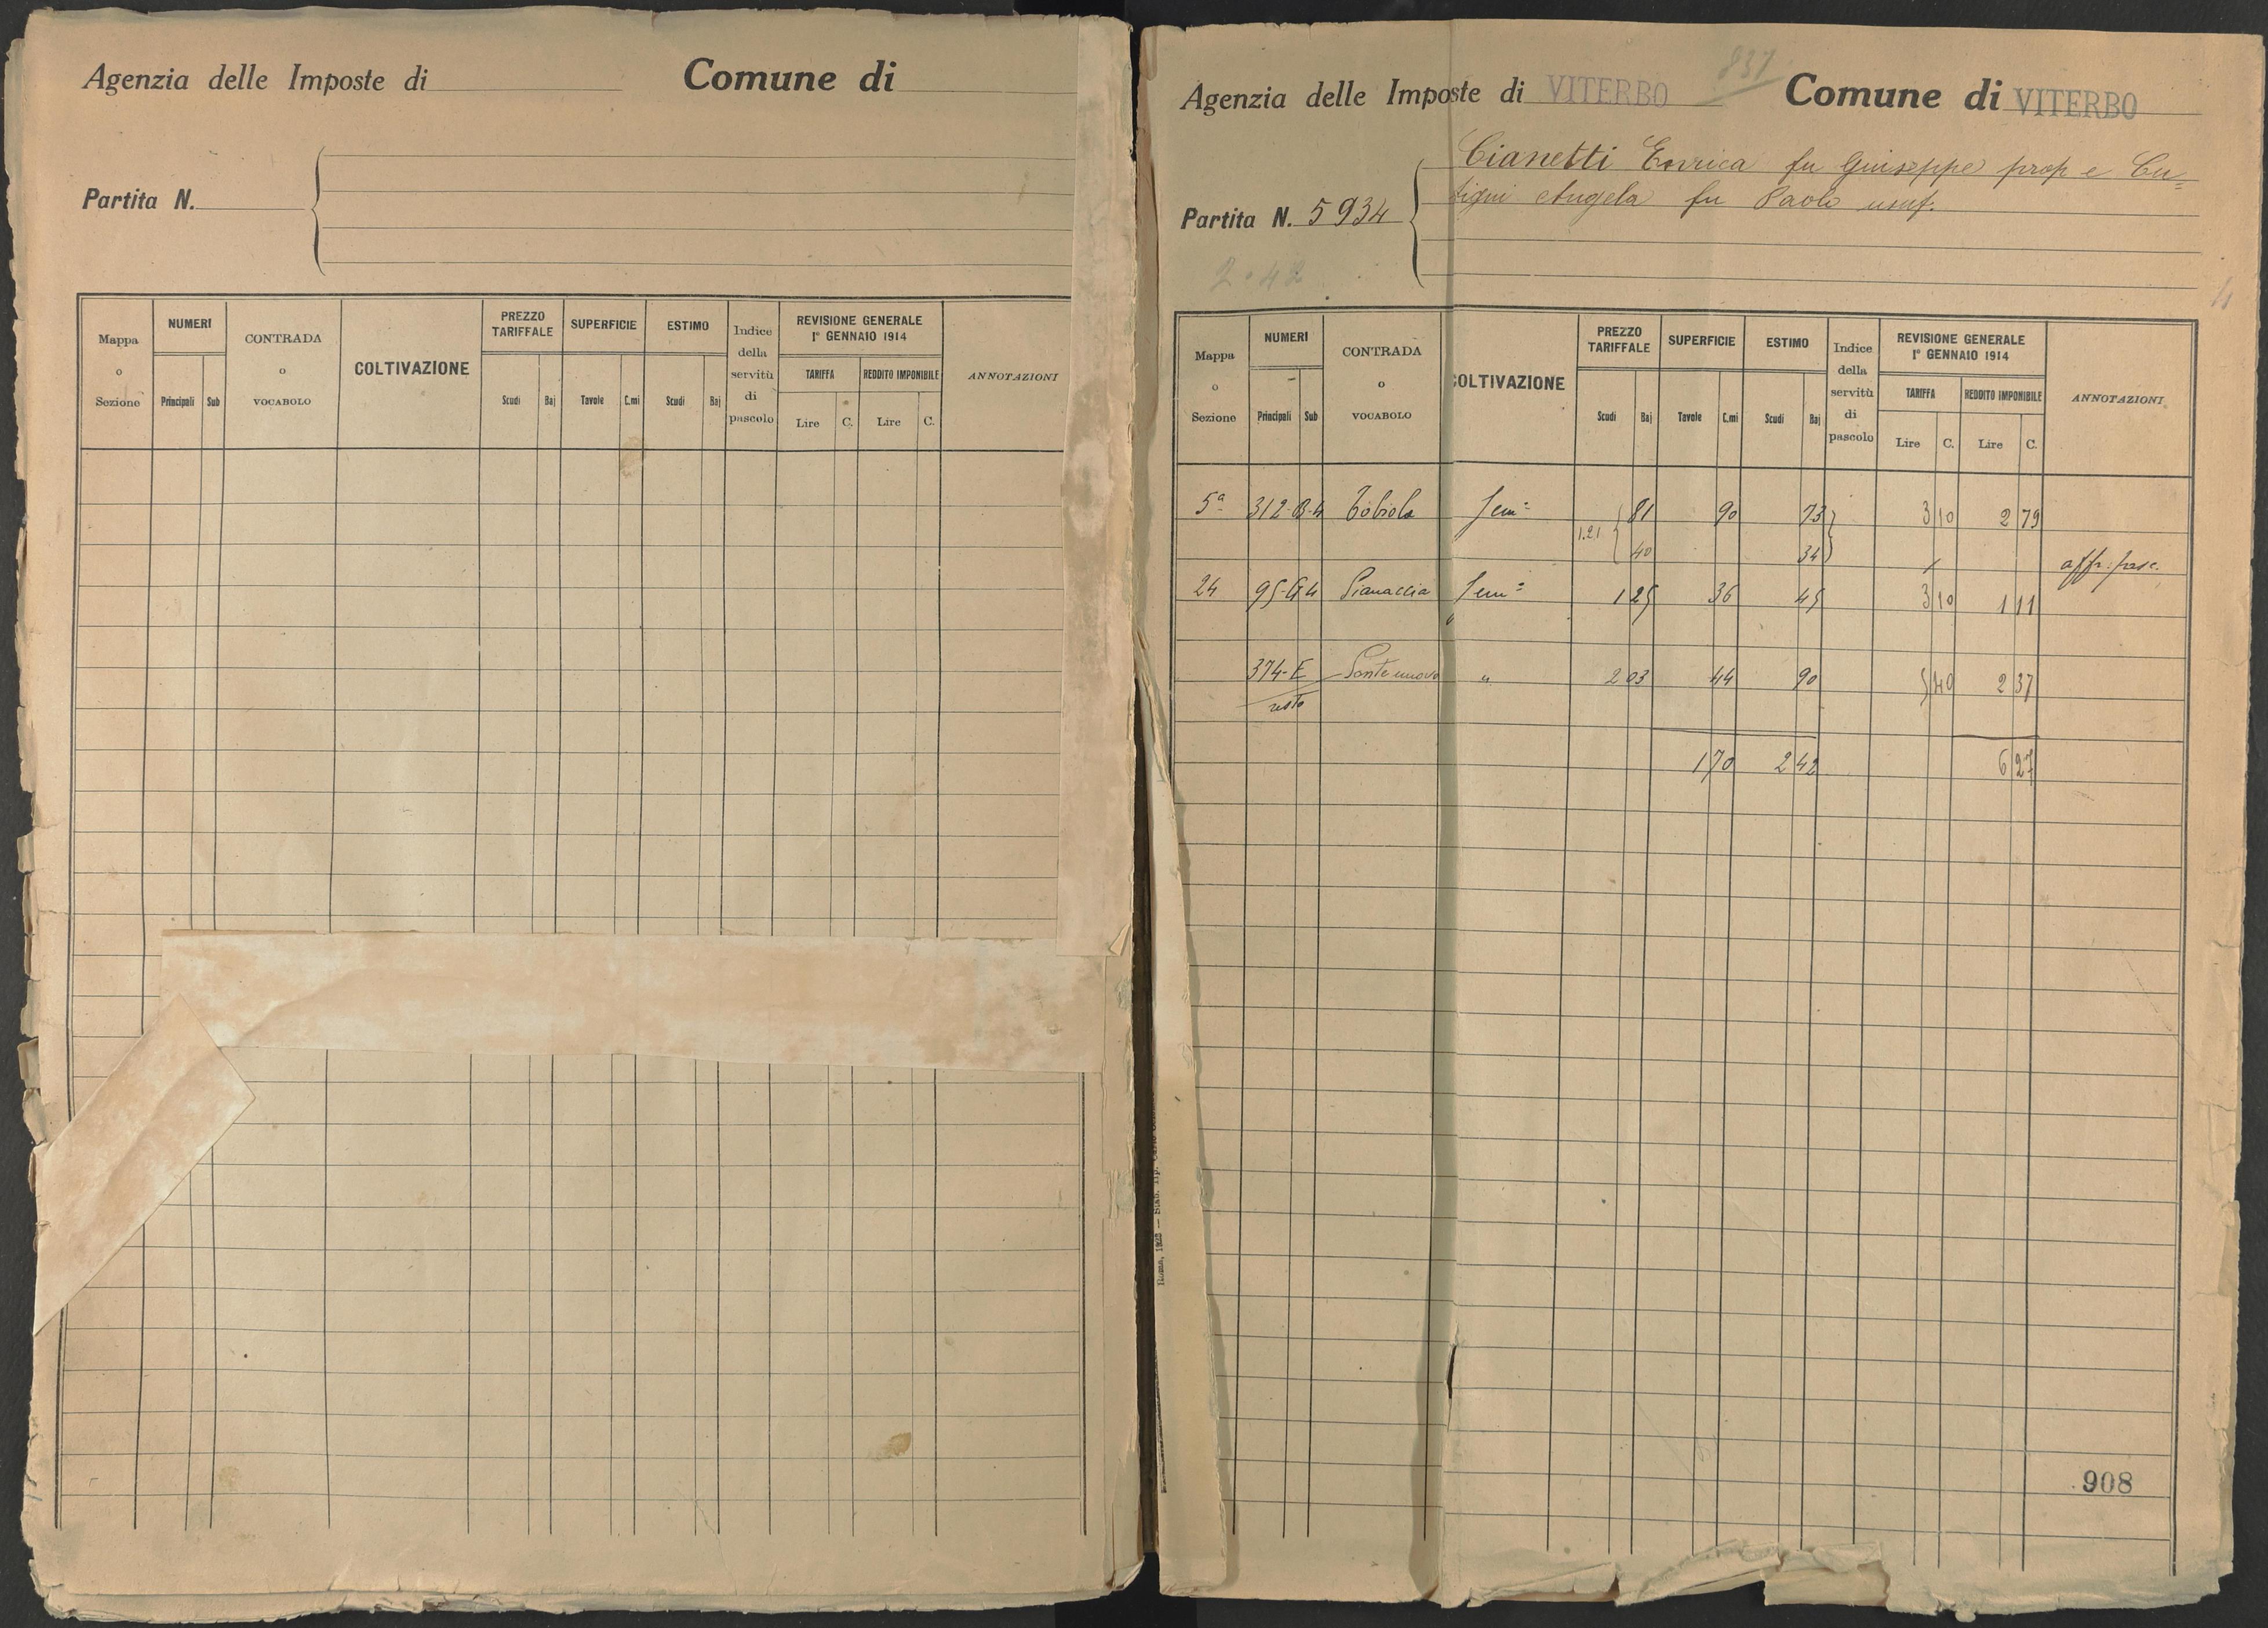 Agenzia delle Imposte di
Comune di
Partita N.
Mappa o Sezione
NUMERI
Principali Sub
CONTRADA o VOCABOLO
COLTIVAZIONE
PREZZO TARIFFALE
Scudi Baj
SUPERFICIE
Tavole C.mi
ESTIMO
Scudi Baj
Indice della servitù di pascolo
REVISIONE GENERALE
1° GENNAIO 1914
TARIFFA
Lire C.
REDDITO IMPONIBILE
Lire C.
ANNOTAZIONI
837
Agenzia delle Imposte di VITERBO
Comune di VITERBO
Cianetti Enrica fu Giuseppe prop e Cu=
tigni Angela fu Paolo usuf.
Partita N. 5934
2.42
Mappa o Sezione
NUMERI
Principali Sub
CONTRADA o VOCABOLO
COLTIVAZIONE
PREZZO TARIFFALE
Scudi Baj
SUPERFICIE
Tavole C.mi
ESTIMO
Scudi Baj
Indice della servitù di pascolo
REVISIONE GENERALE
1° GENNAIO 1914
TARIFFA
Lire C.
REDDITO IMPONIBILE
Lire C.
ANNOTAZIONI
5a 312-B-4 Tobiola Sem= 1.21 81 90 73 3 10 2 79
40 34 affr: pasc.
24 95-G4 Pianaccia Sem= 1 25 36 45 3 10 1 11
374-E Ponte nuovo " 2 03 44 90 5 40 2 37
resto
1 70 2 42 6 27
908